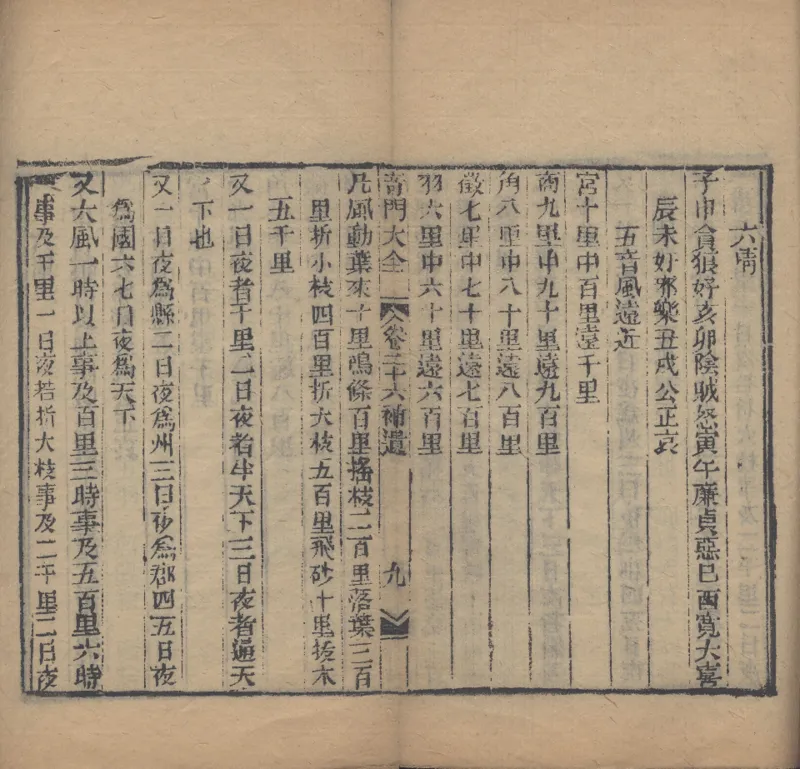 六情
子申貪狼好亥卯陰賊怒寅午廉貞惡巳酉寬大喜
辰未奸邪樂丑戌公正哀
五音風遠近
宮十里中百里遠千里
商九里中九十里遠九百里
角八里中八十里遠八百里
徵七里中七十里遠七百里
羽六里中六十里遠六百里
奇門大全 卷二十六補遺 九
凡風動葉來十里鳴條百里搖枝二百里落葉三百
里折小枝四百里折大枝五百里飛砂千里拔木
五千里
又一日夜者千里二日夜者半天下三日夜者遍天
下也
又一日夜為縣二日夜為州三日夜為郡四五日夜
為國六七日夜為天下
又大風一時以上事及百里三時事及五百里六時
事及千里一日夜若折大枝事及二千里二日夜